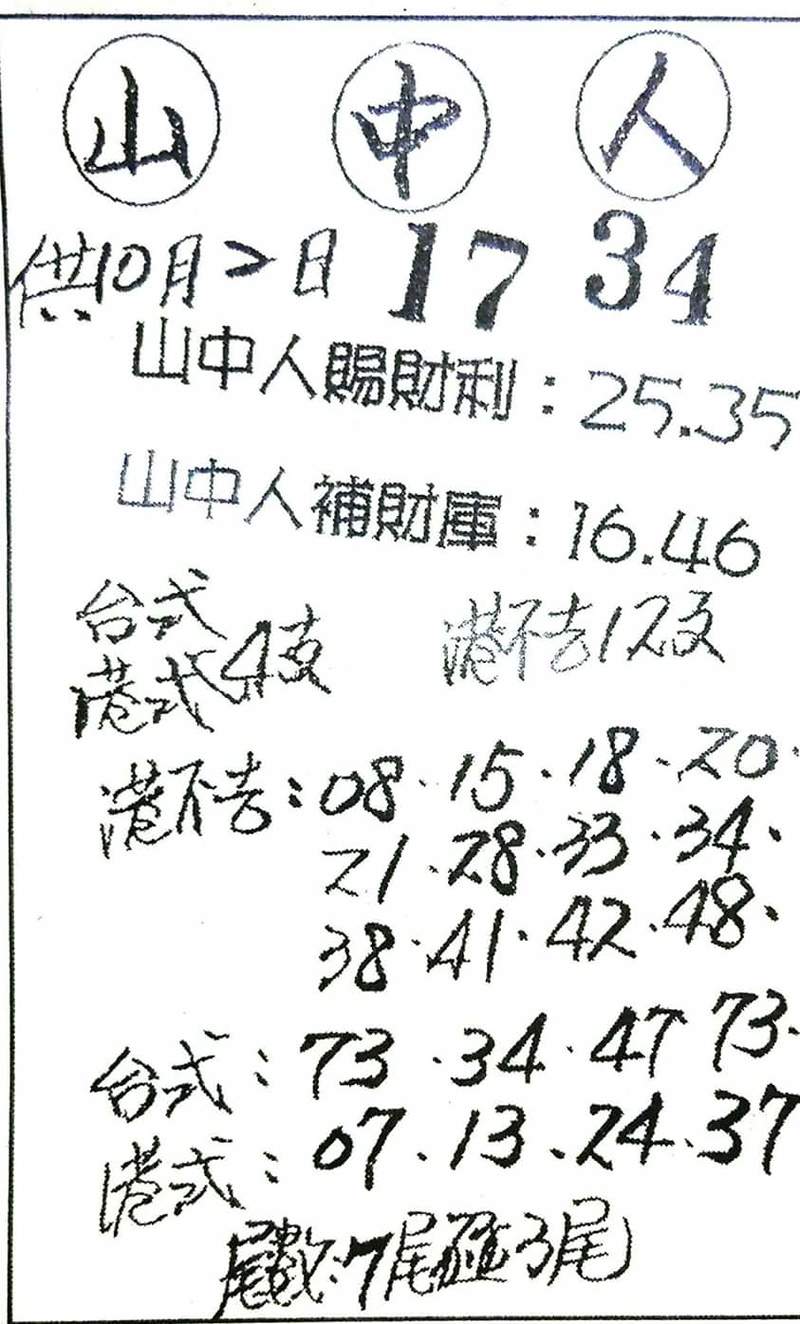 山 中 人
供10月2日 17 34
山中人賜財利：25.35
山中人補財庫：16.46
台式
港式 4支 港不吉12支
港不吉：08.15.18.20.
21.28.33.34.
38.41.42.48.
台式：73.34.47 73.
港式：07.13.24.37
尾數：7尾碰3尾